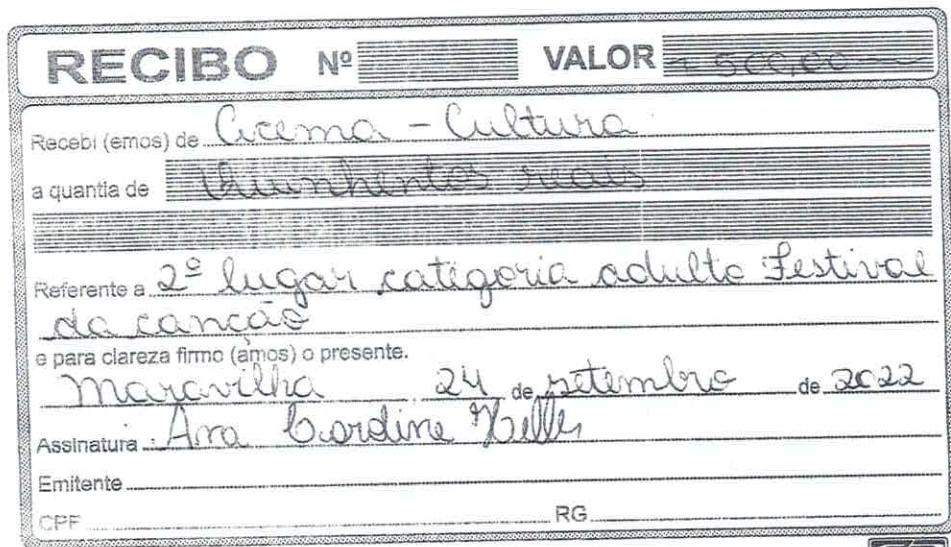 RECIBO Nº VALOR 500,00
Recebi (emos) de Acema - Cultura
a quantia de Quinhentos reais
Referente a 2º lugar categoria adulto Festival
da canção
e para clareza firmo (amos) o presente.
Maravilha 24 de setembro de 2022
Assinatura Ana
Emitente
CPF RG